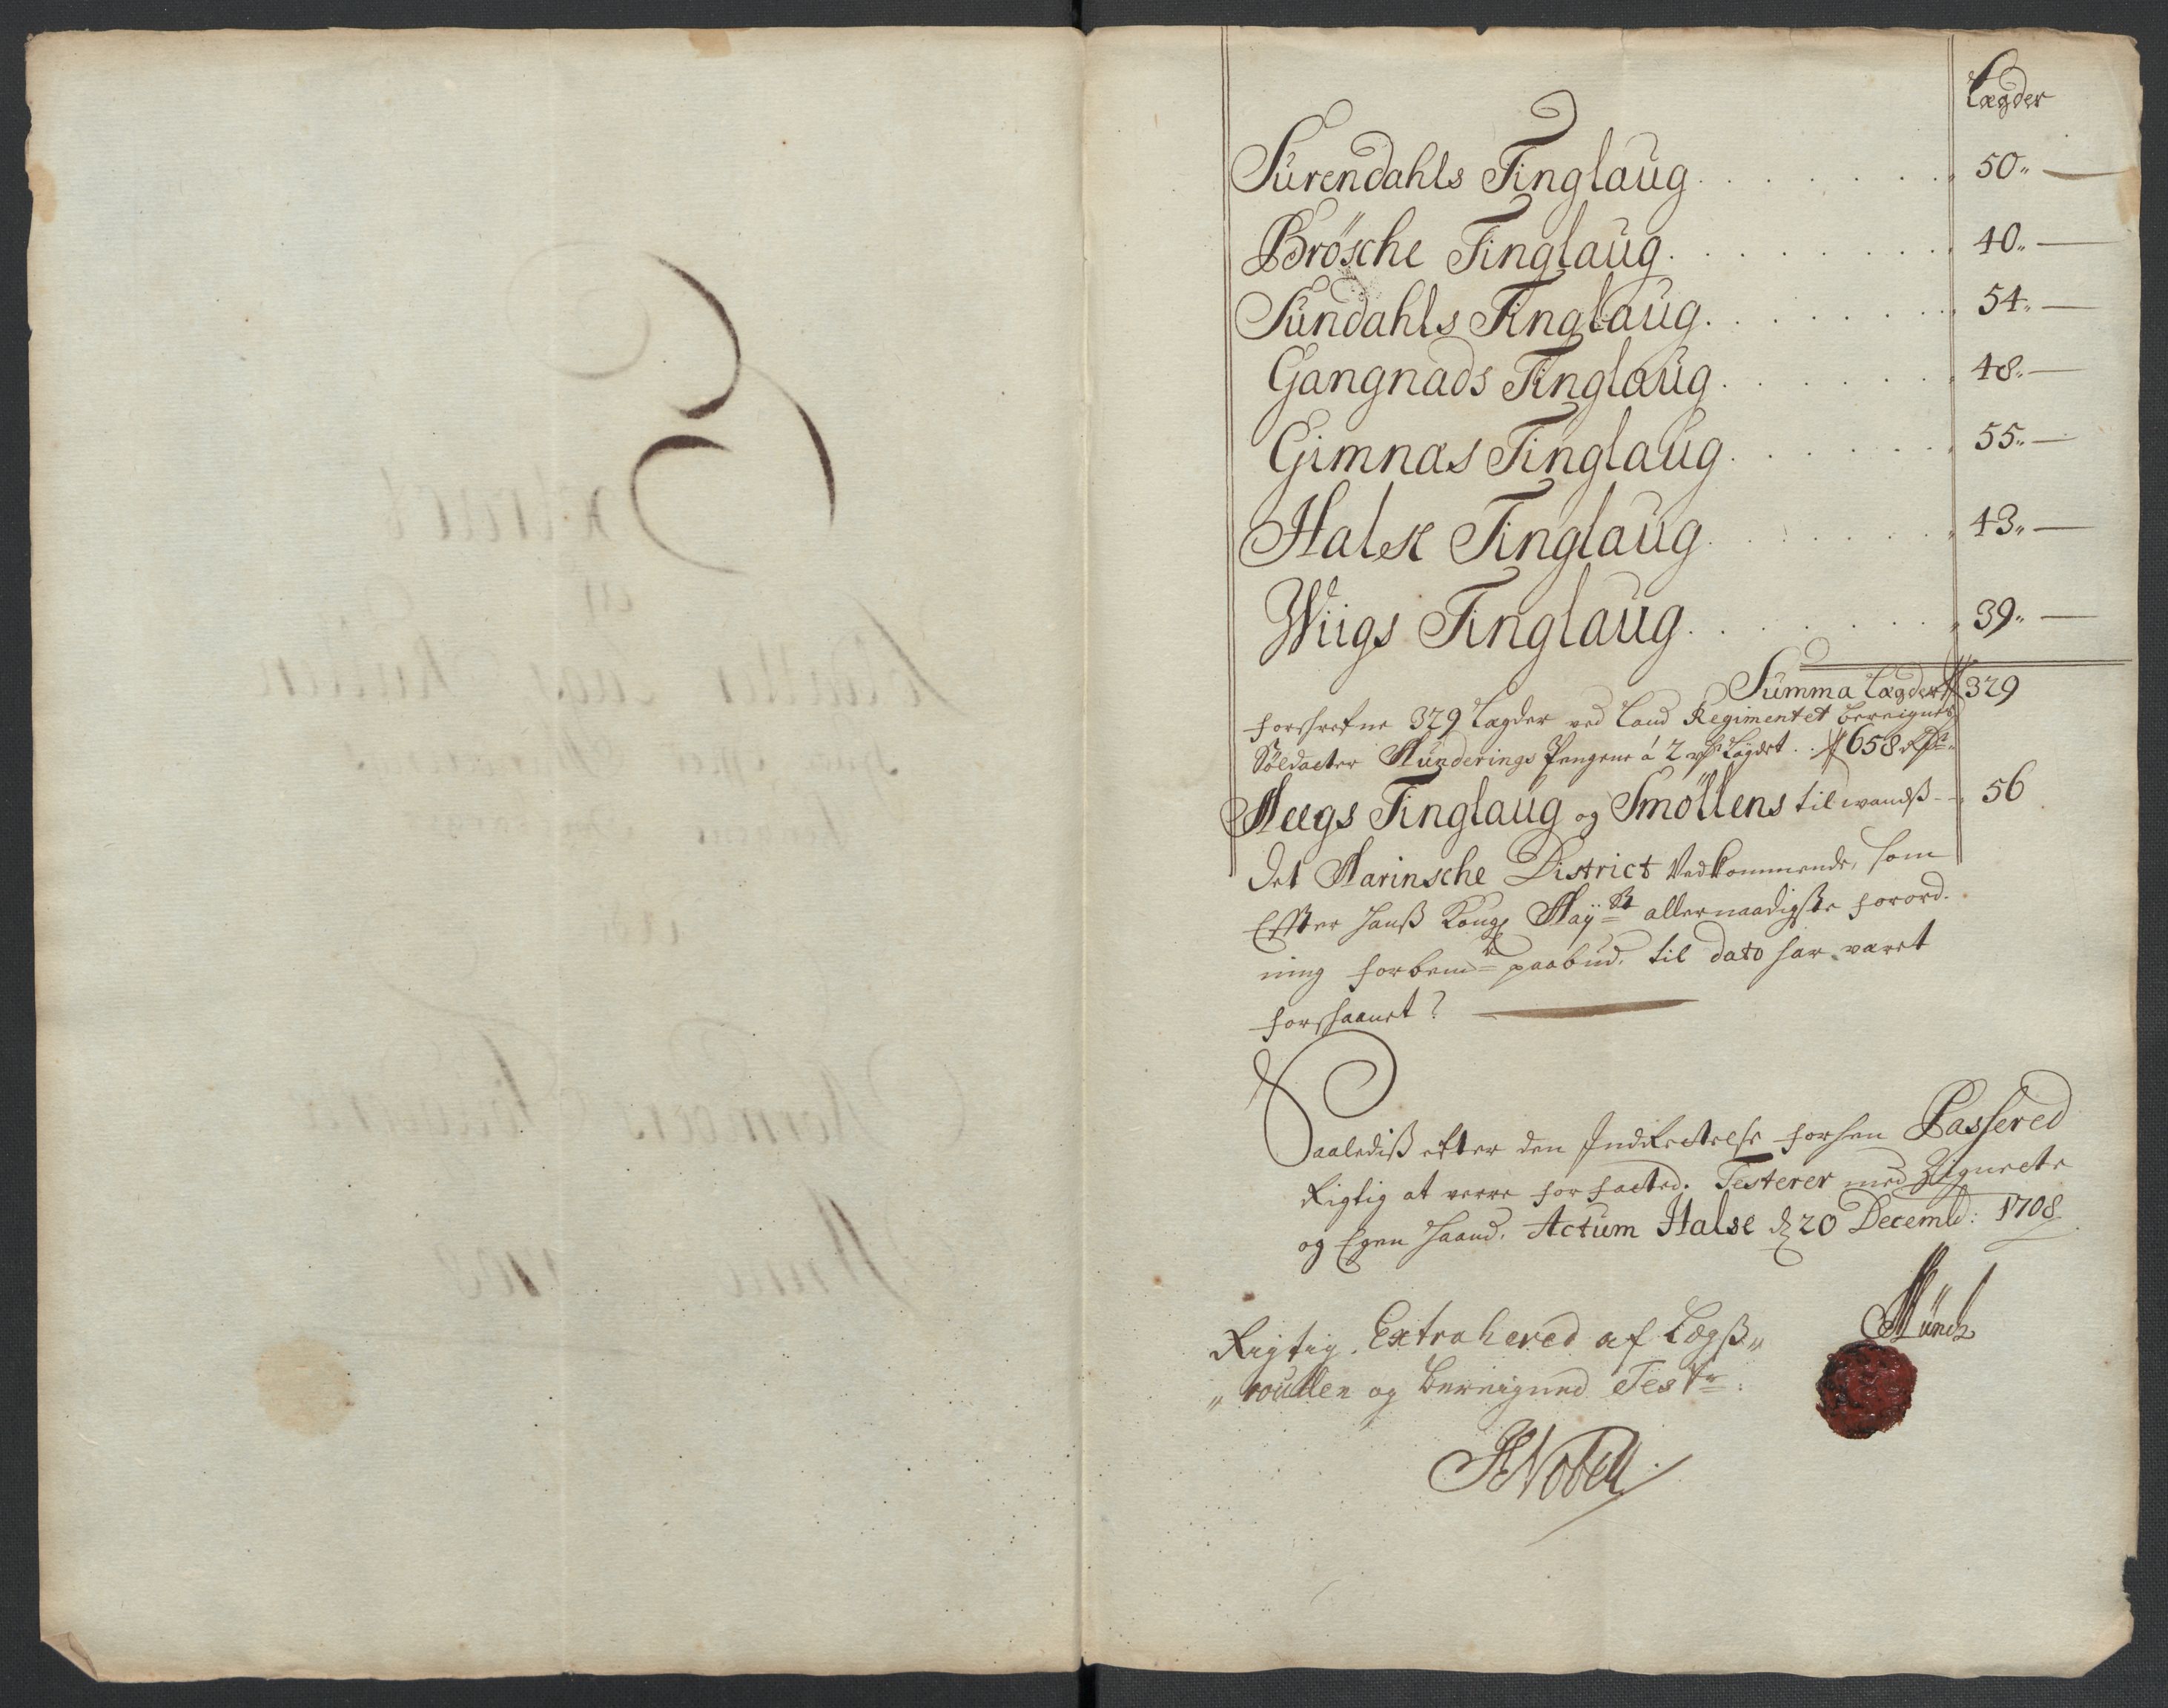 Lægder
Sürendahls Tinglaüg . . . . . . . . 50„ —
Brösche Tinglaüg . . . . . . . . . 40„ —
Sündahls Tinglaüg . . . . . . . . 54„ —
Gangnads Tinglaüg . . . . . . . 48„ —
Gimnæs Tinglaüg . . . . . . . 55„ —
Halse Tinglaüg . . . . . . . . 43„ —
Wiigs Tinglaüg . . . . . . . . 39„ —
Summa Lægder 329
forschrefne 329 Lægder ved Land Regimentet bereignes
Soldater Munderings Pengene á 2 Lægdet . . 658
Meegs Tinglaüg og Smöllens til 56
det Marinsche District Vedkommende, som
Effter hanß Kongl Maÿst allernaadigste forord-
ning forbemte paabud, til dato har været
forskaanet?
Saalediß efter den Indrettelse forhen Passered
Rigtig at verre forfatted. Testerer med Zignete
og Egen haand. Actum Halse d 20 Decembd: 1708
Münch
Rigtig Extrahered af Lægß„
„roullen og bereigned Testr: